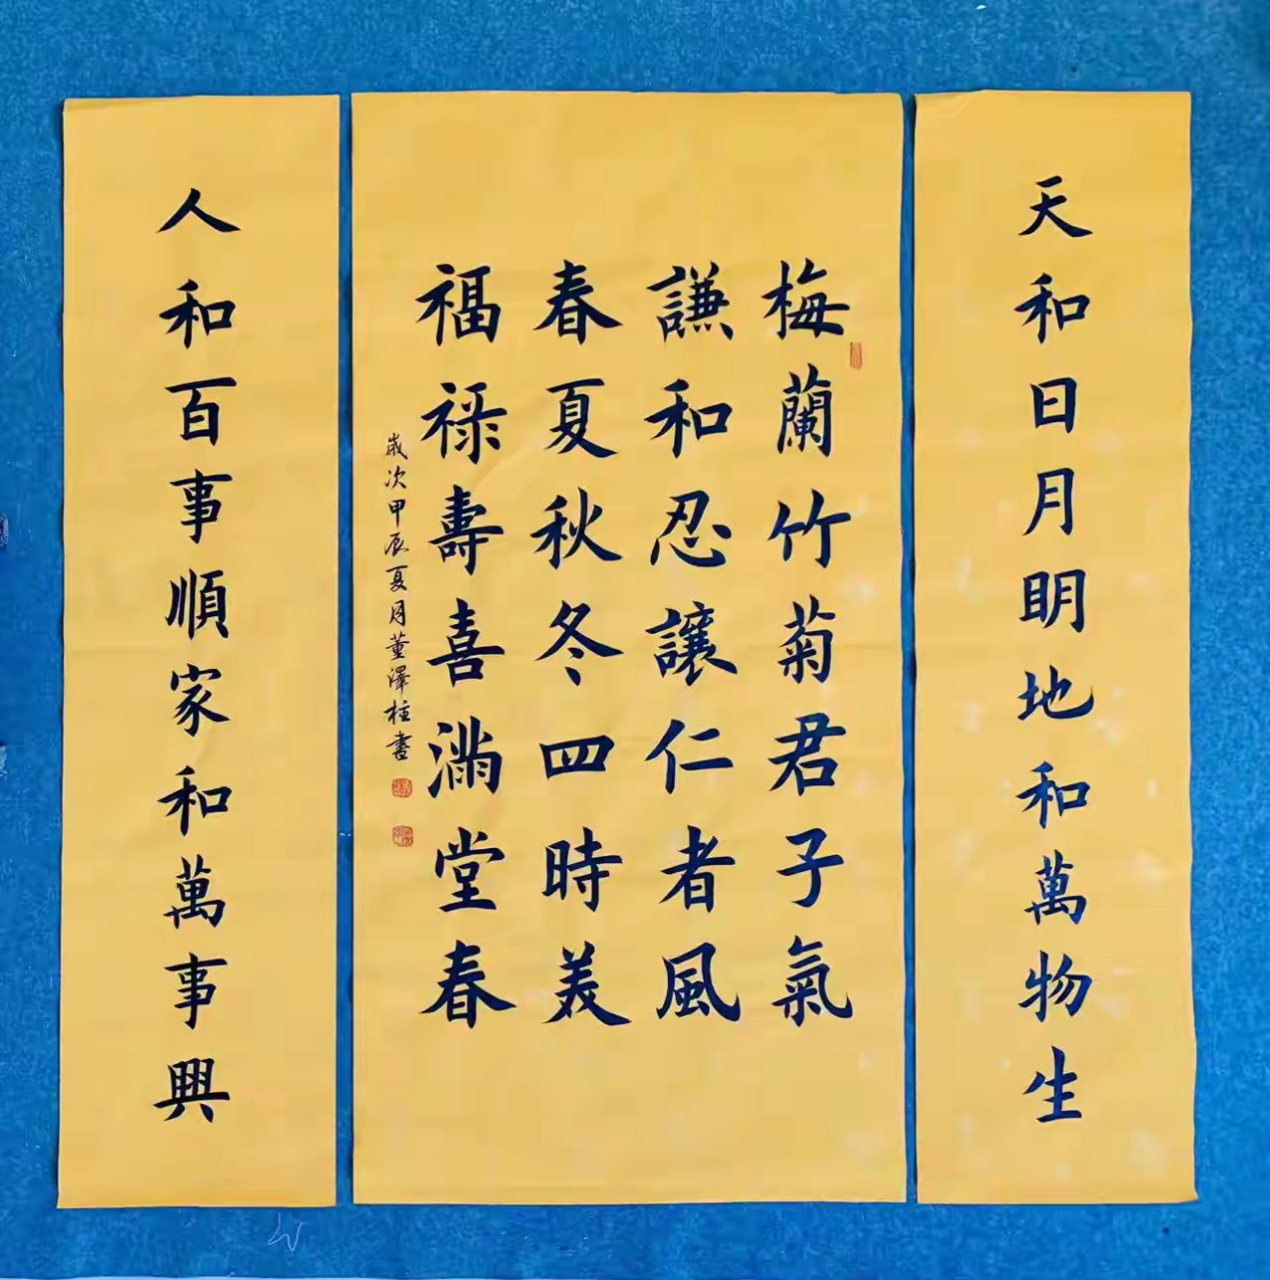 天和日月明地和萬物生
梅蘭竹菊君子氣
謙和忍讓仁者風
春夏秋冬四時美
福祿壽喜滿堂春
歲次甲辰夏月董澤柱書
人和百事順家和萬事興